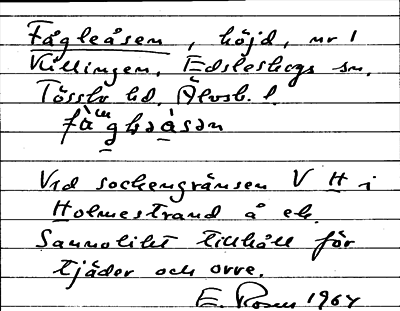 Fågleåsen, höjd, nr 1
Killingen, Edsleskogs sn.
Tössbo hd. Älvsb. l.
Vid sockengränsen V H i
Holmestrand å ek.
Sannolikt tillhåll för
tjäder och orre.
E. Rosén 1964